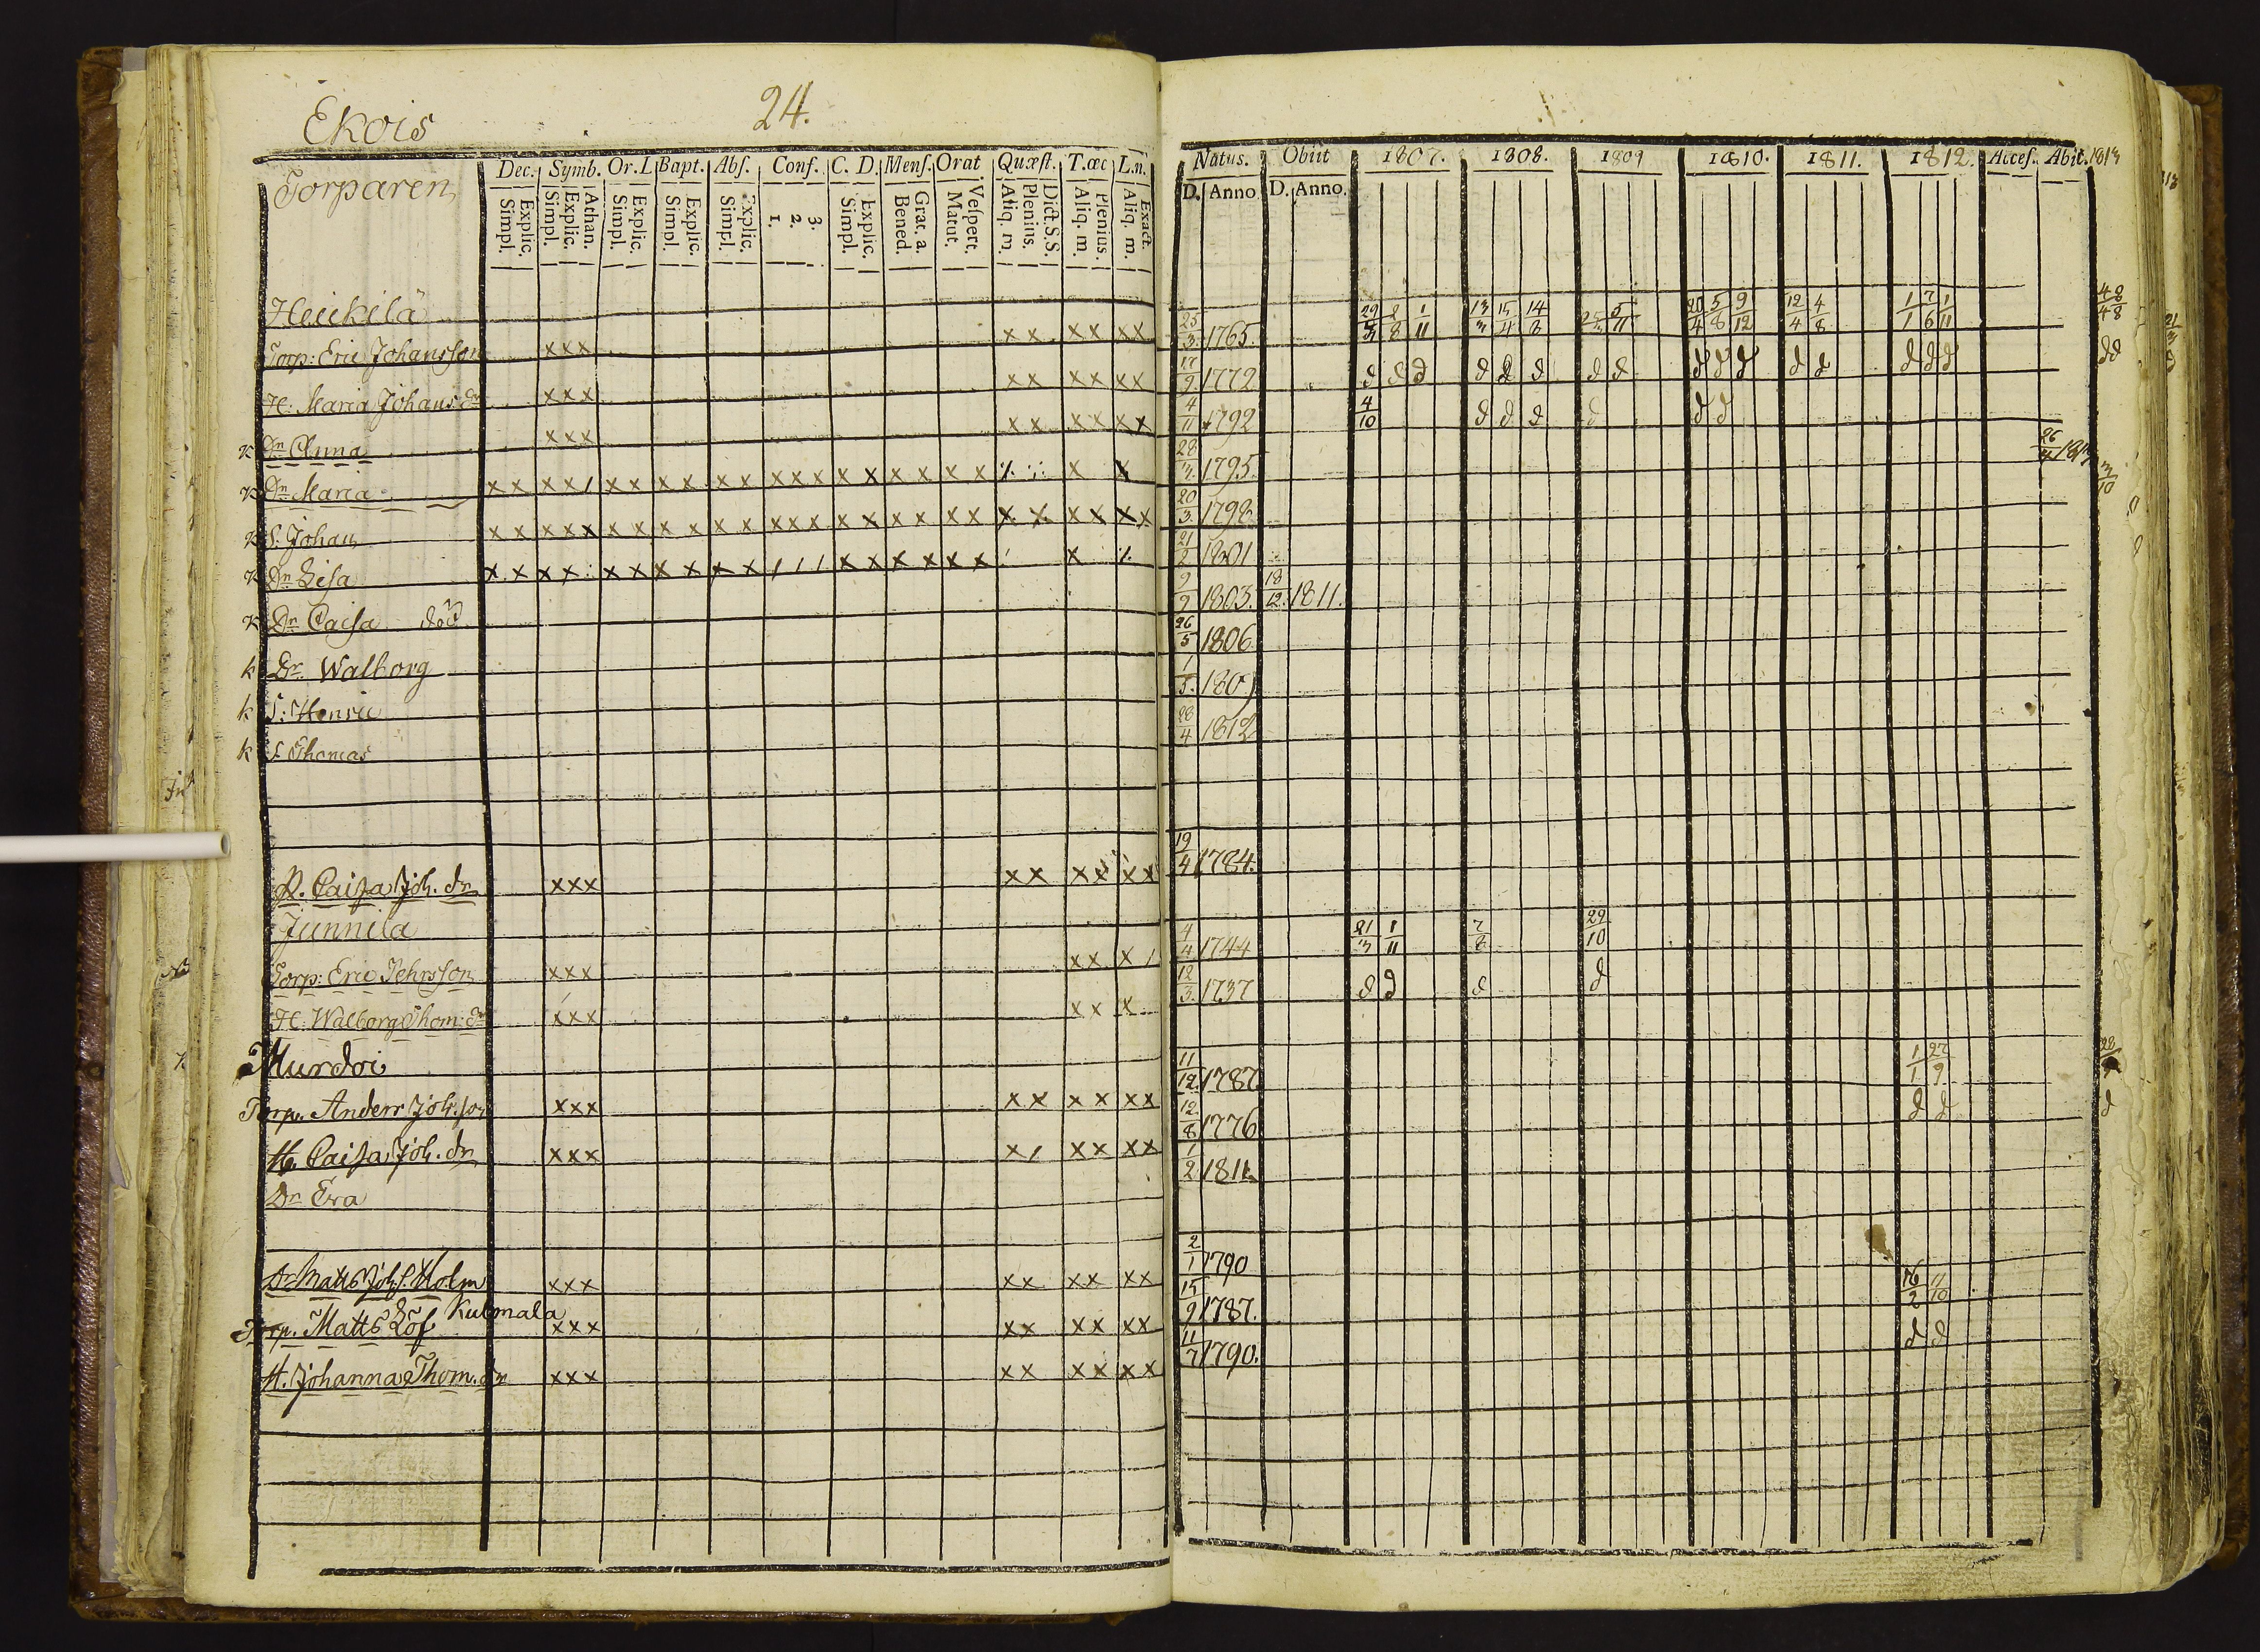 Ekois 24.
Torparen
Dec. Symb. Or.L Bapt. Abſ. Conf. C. D. Menſ. Orat Quæſt. T.œc L.n.
Explic. Simpl. Athan. Explic. Simpl. Explic. Simpl. Explic. Simpl. Explic. Simpl. 3. 2. 1. Explic. Simpl. Grat. a. Bened. Veſpert. Matut. Dict.S.S. Plenius. Aliq. m. Plenius. Aliq. m Exact. Aliq. m.
Natus. Obiit 1807. 1808. 1809 1810. 1811. 1812. Acceſ. Abit. 1813
D. Anno D. Anno.
Heickilä
Torp: Eric Johansson xxx xx xx xx 25/3 1765. 29/3 2/8 1/11 13/3 15/4 14/8 5/11 20/4 5/8 9/12 12/4 4/8 1/1 7/6 1/11
H: Maria Johans dr xxx xx xx xx 17/9 1772 d d d d d d d d d d d d d d d d d d
K Dr Anna xxx xx xx xx 4/11 1792 4/10 d d d d d d
K Dr Maria xx xx/ xx xx xx xxx xx xx xx x x 28/3 1795. 26/3 1813
K S: Johan xx xxx xx xx xx xxx xx xx xx x x xx xx 20/3 1798
K Dr Lisa xx xx xx xx xx /// xx xx xx / x 21/2 1801
K Dr Caisa död 9/9 1803. 18/12 1811.
K Dr Walborg 26/5 1806
K S: Henric 1/5 1809
K S Thomas 28/4 1812
P. Caisa Joh. dr xxx xx xx xx 19/4 1784.
Junnila
Torp: Eric Jehrsson xxx xx x/ 4/4 1744 21/3 1/11 7/8 29/10
H: Walborg Thom: dr xxx xx x 12/3 1737 d d d d
Murdoi
Torp. Anders Joh. son xxx xx xx xx 11/12 1787 1/1 27/9
H. Caisa Joh. dr xxx x/ xx xx 12/8 1776 d d d
Dr Eva 1/2 1811
Dr Matts Joh. S. Holm xxx xx xx xx 2/1 1790
Torp. Matts Löf Kulmala xxx xx xx xx 15/9 1787. 16/2 11/10
H. Johanna Thom. dr xxx xx xx xx 11/7 1790. d d